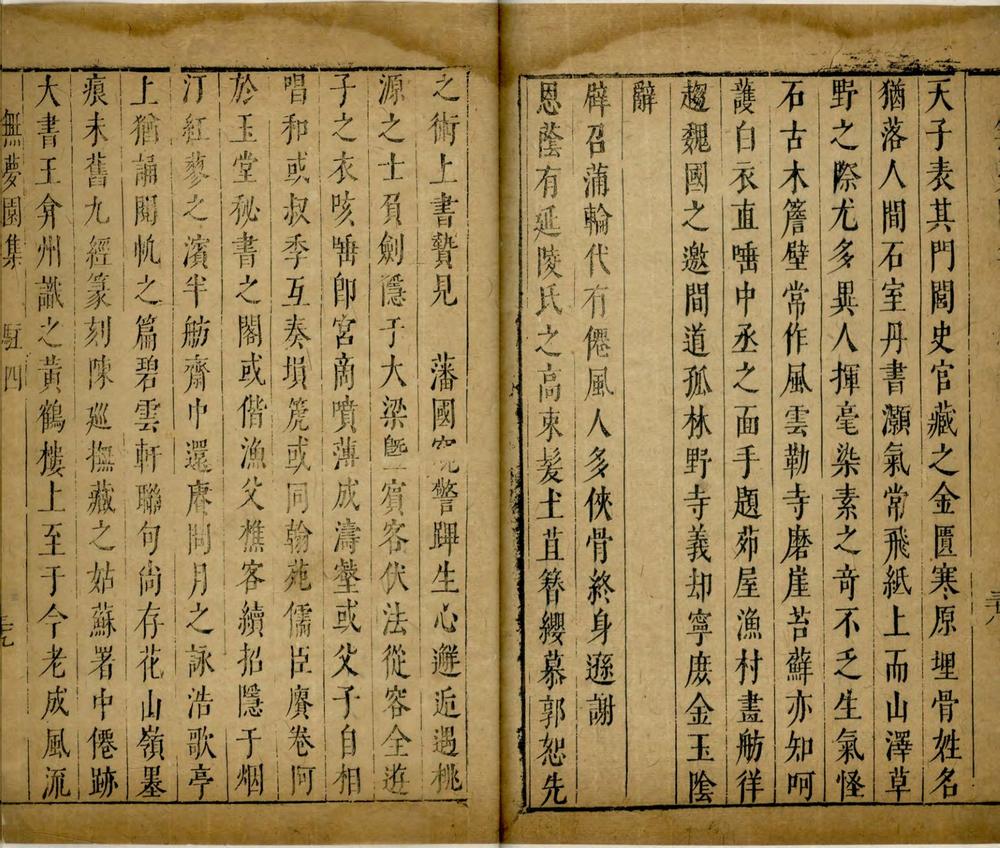 天子表其門閭史官藏之金匱寒原埋骨姓名
猶落人間石室丹書灝氣常飛紙上而山澤草
野之際尤多異人揮毫染素之竒不乏生氣怪
石古木簷壁常作風雲勒寺磨崖苔蘚亦知呵
護白衣直唾中丞之面手題茆屋漁村畫舫徉
趨魏國之邀間道孤林野寺義却寧庶金玉陰
辭
辟召蒲輪代有僊風人多俠骨終身遜謝
恩蔭有延陵氏之高束髮土苴簪纓慕郭恕先
之術上書贄見　藩國
警蹕生心邂逅遇桃
源之士負劍隱于大梁
賓客伏法從容全遊
子之衣咳唾卽宮商噴薄成濤壑或父子自相
唱和或叔季互奏塤箎或同翰苑儒臣賡卷阿
於玉堂秘書之閣或偕漁父樵客續招隱于烟
汀紅蓼之濱半舫齋中還賡問月之詠浩歌亭
上猶誦閣帆之篇碧雲軒聯句尙存花山嶺墨
痕未舊九經篆刻陳廵撫藏之姑蘇署中僊跡
大書王弇州識之黃鶴樓上至于今老成風流
無夢園集　駐四　三九